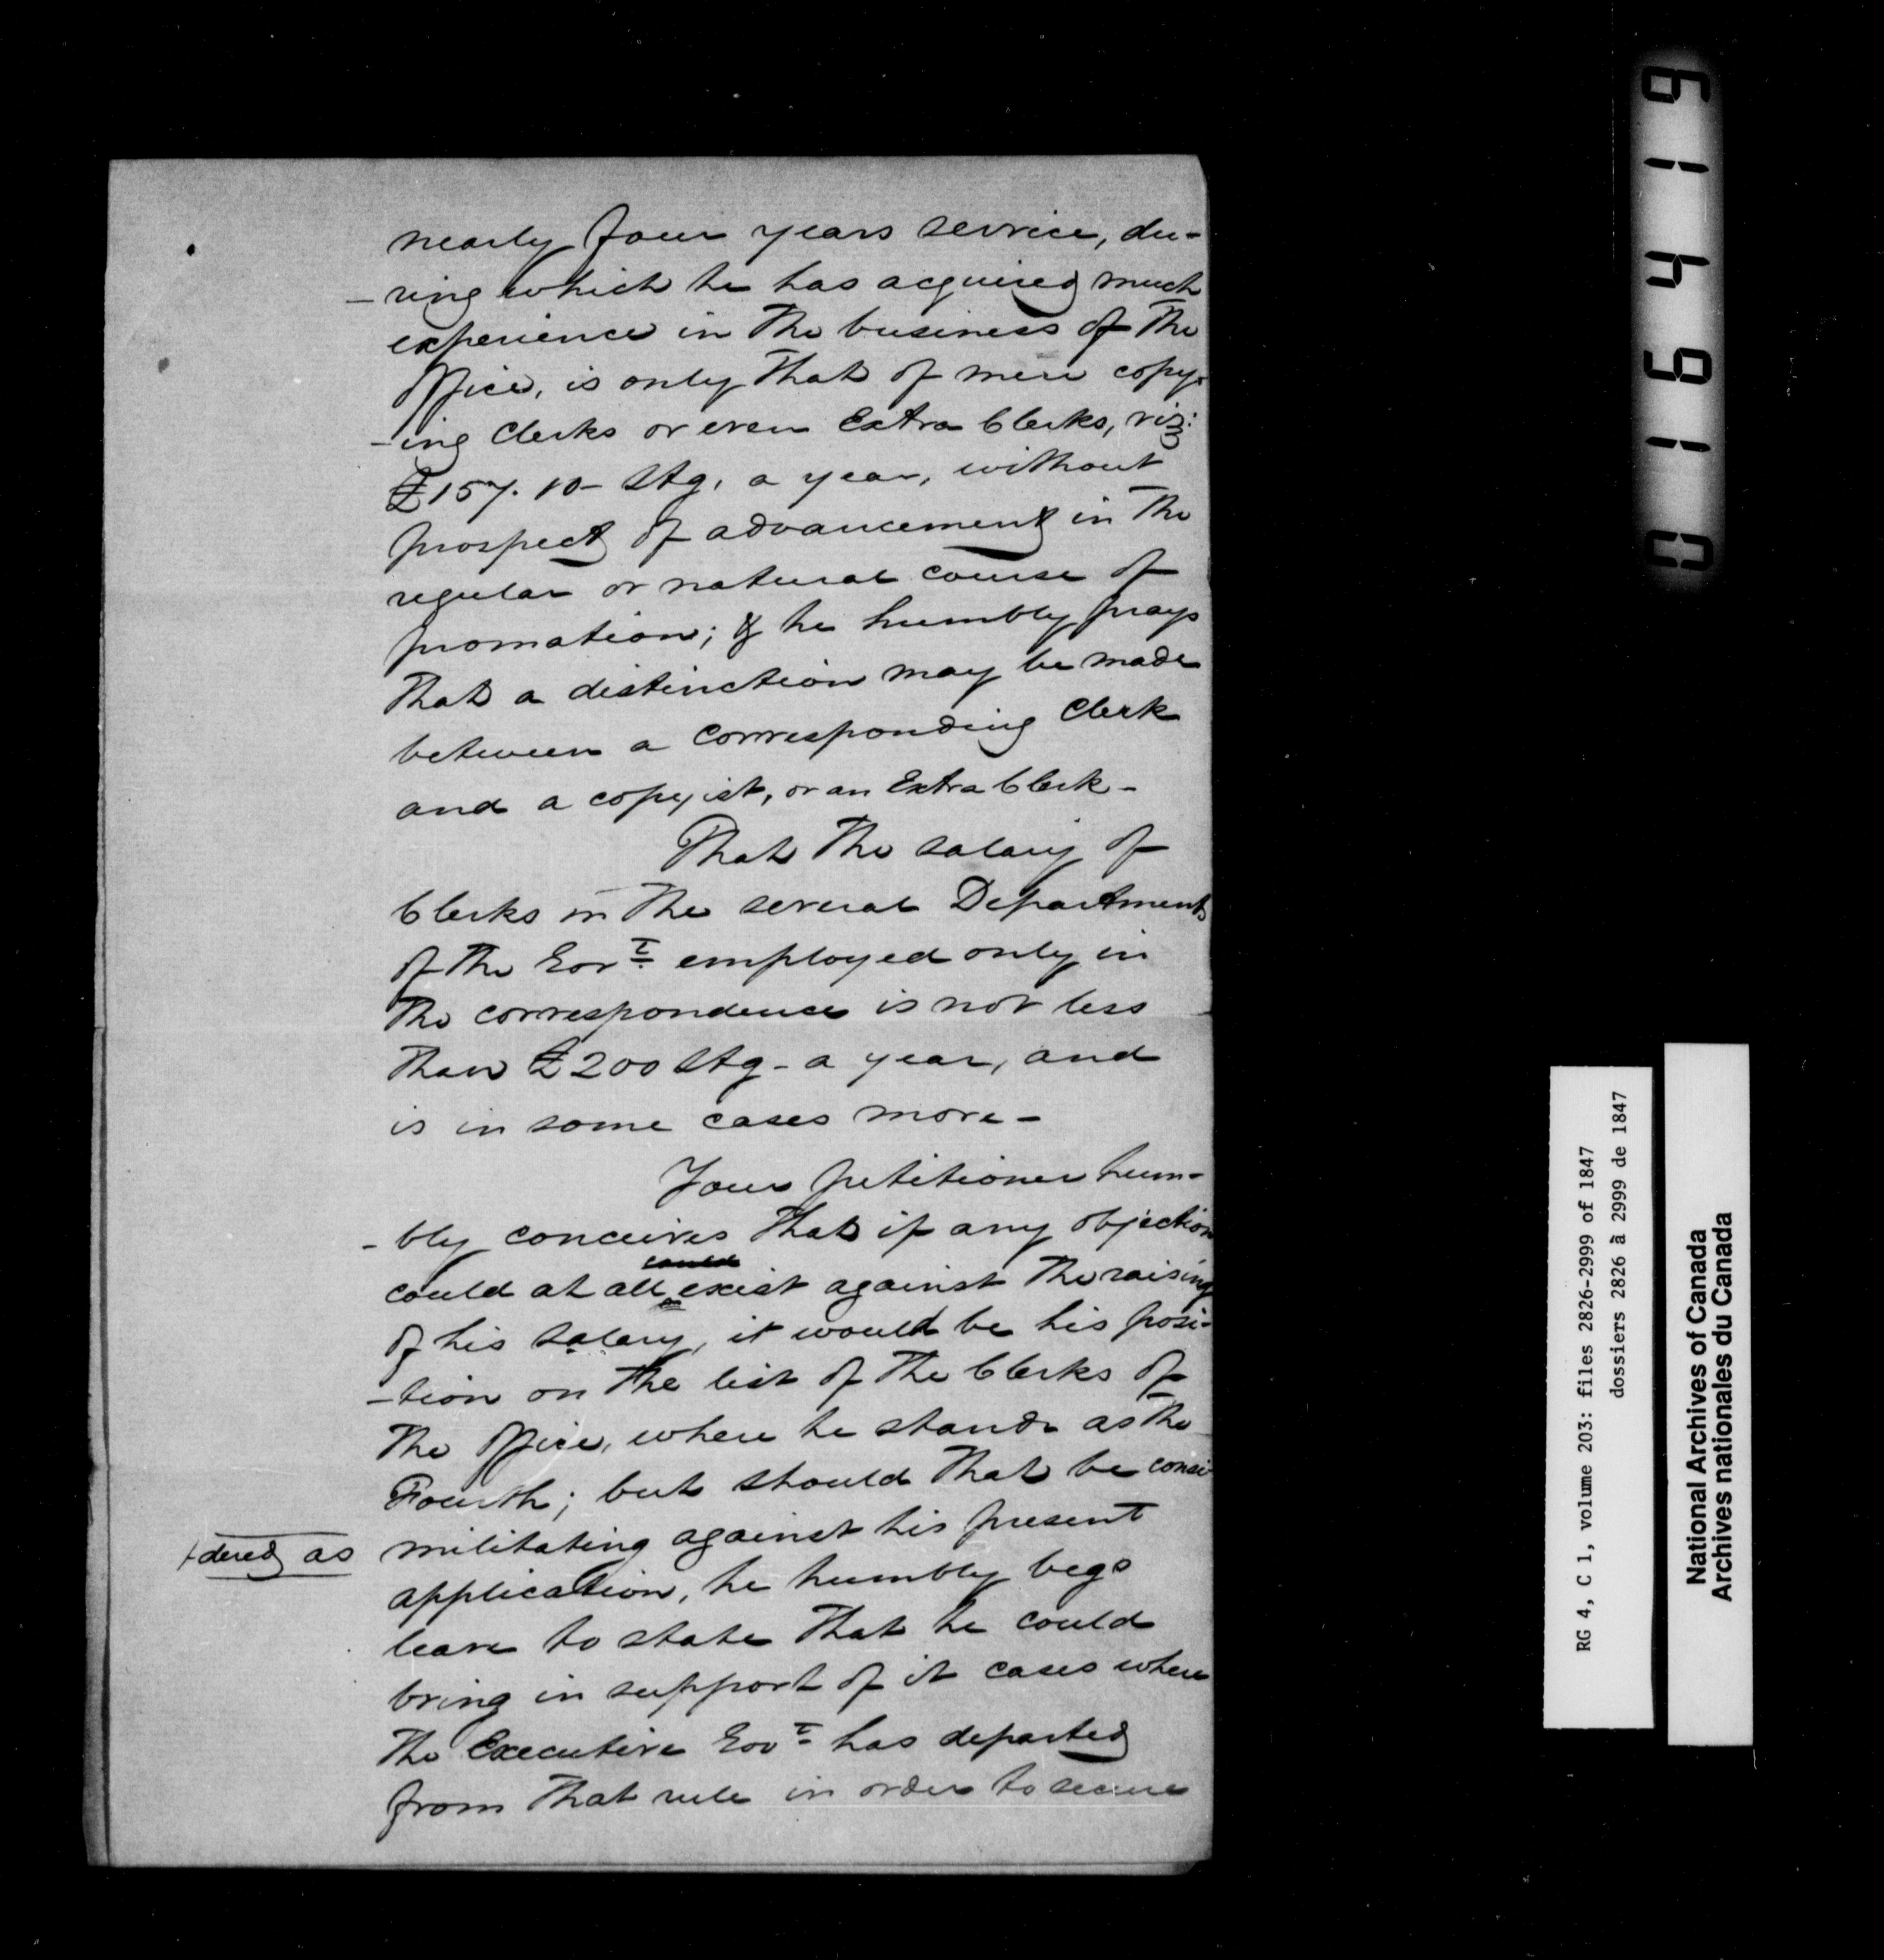 nearly four years service, du-
-ring which he has acquired much
experience in the business of the
Office, is only that of mere copy-
-ing Clerks or even Extra Clerks, viz:
£157. 10- Stg. a year, without
prospect of advancement in the
regular or natural course of
promotion; & he humbly prays
that a distinction may be made
between a corresponding Clerk
and a copyist, or an Extra Clerk-
That the salary of
Clerks in the several Departments
of the Govt. employed only in
the correspondence is not less
than £200 Stg- a year, and
is in some cases more-
Your petitioner hum-
-bly conceives that if any objection
could
could at all exist against the raising
of his salary, it would be his posi-
-tion on the list of the Clerks of
the Office, where he stands as the
Fourth; but should that be consi-
-dered as militating against his present
application, he humbly begs
leave to state that he could
bring in support of it cases where
the Executive Govt. has departed
from that rule in order to secure
016419
RG 4, C 1, volume 203: files 2826-2999 of 1847
dossiers 2826 à 2999 de 1847
National Archives of Canada
Archives nationales du Canada